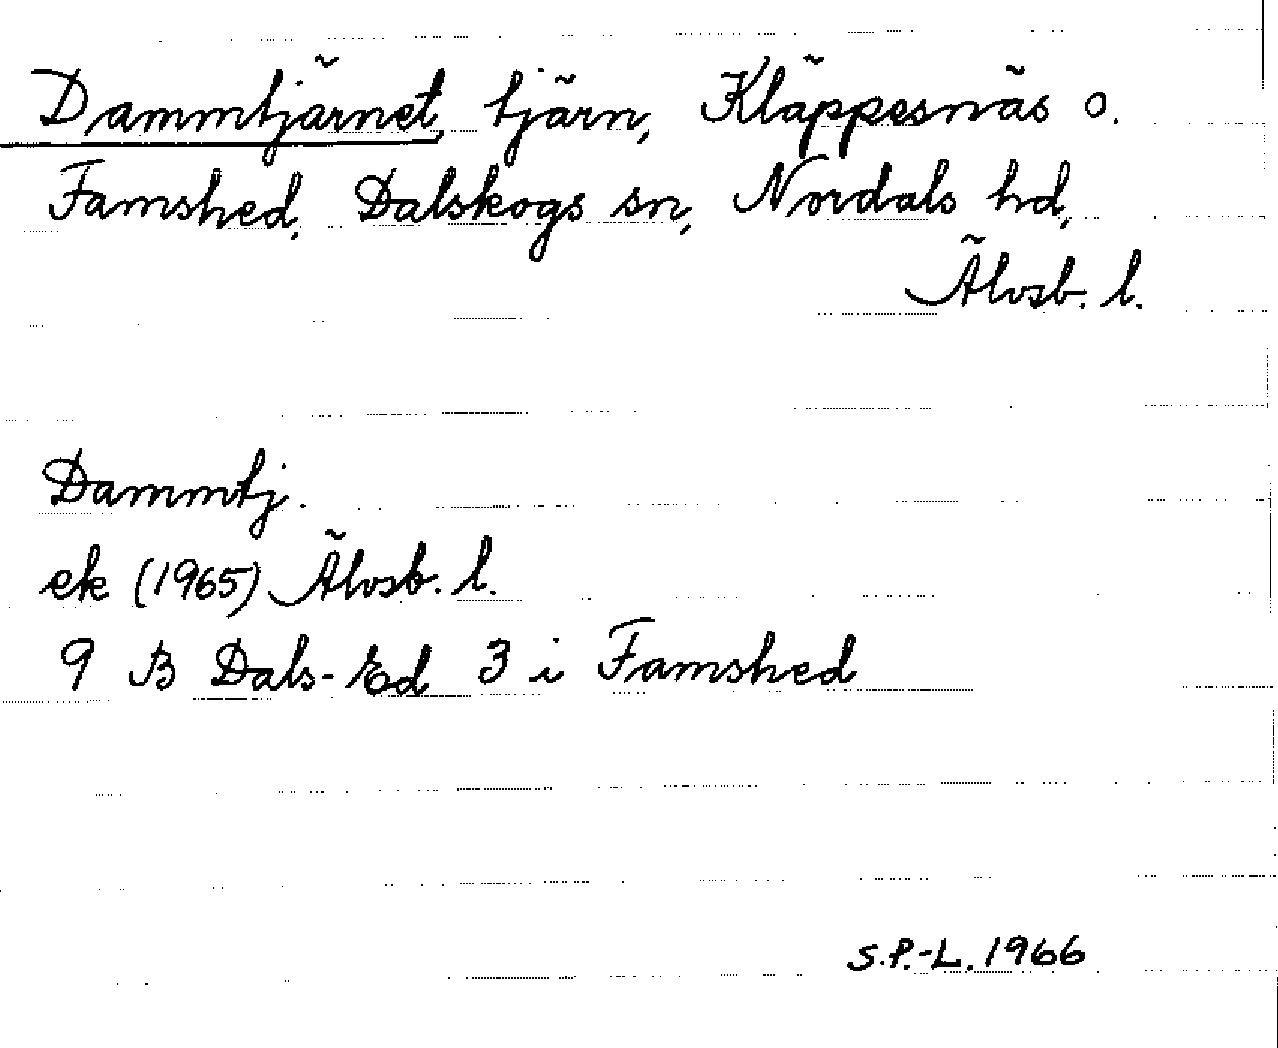 Dammtjärnet, tjärn, Kläppesnäs o.
Famshed, Dalskogs sn, Nordals hd,
Älvsb. l.
Dammtj.
ek (1965) Älvsb. l.
9 B Dals-Ed 3 i Famshed
S.P.-L. 1966